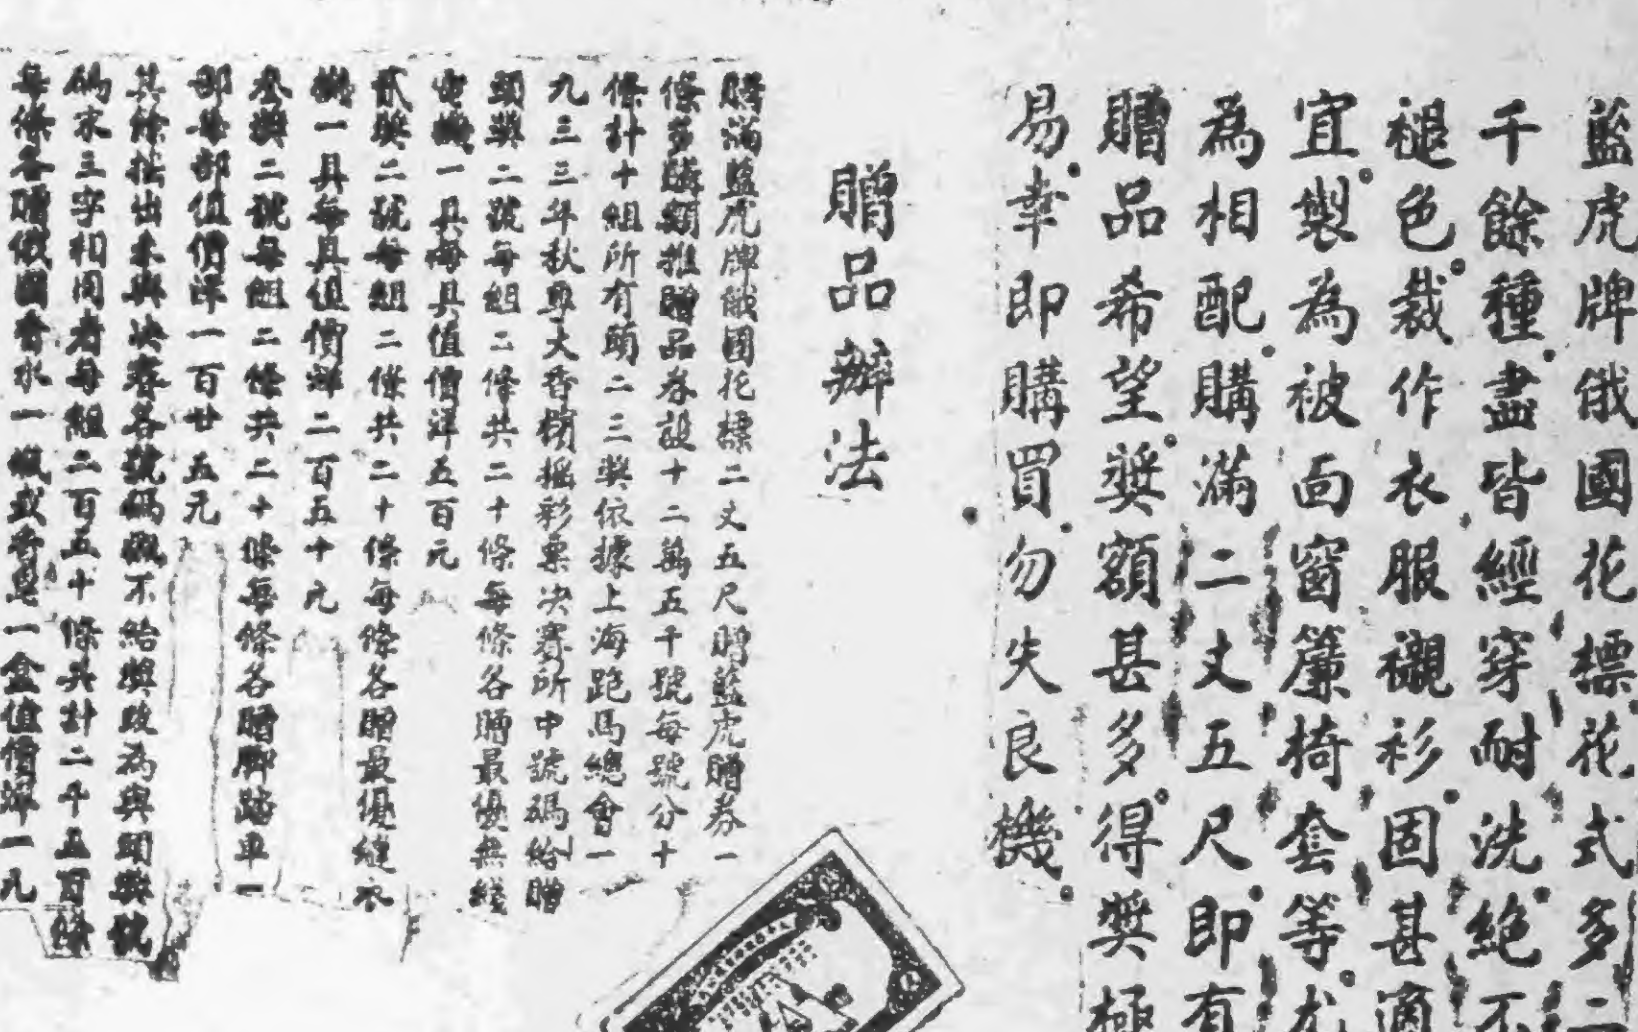 藍虎牌俄國花標花式多二
千餘種盡皆經穿耐洗絕不
褪色裁作衣服襯衫固甚適
宜製為被面窗簾椅套等尤
為相配購滿二丈五尺即有
贈品希望獎額甚多得獎極
易幸即購買勿失良機
贈品辦法
購滿藍虎牌俄國花標二丈五尺贈藍虎贈券一
條多購類推贈品券設十二萬五千號每號分十
條計十組所有頭二三獎依據上海跑馬總會一
九三三年秋專大香檳搖彩票決賽所中號碼給贈
頭獎二號每組二條共二十條每條各贈最優無綫
電機一具每具值價洋五百元
貳獎二號每組二條共二十條每條各贈最優縫衣
機一具每具值價洋二百五十元
叁獎二號每組二條共二十條每條各贈脚踏車一
部每部值價洋一百廿五元
其餘搖出未與決賽各號碼概不給獎改為與頭獎號
碼末三字相同者每組二百五十條共計二千五百條
每條各贈俄國香水一瓶或香皂一盒值價洋一元